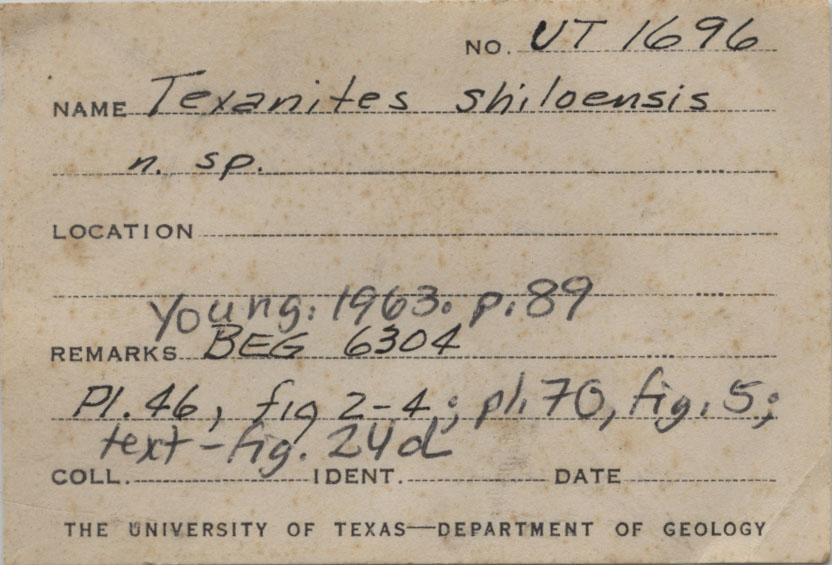 NO. UT 1696
NAME Texanites shiloensis
n. sp.
LOCATION
Young. 1963. p. 89
REMARKS BEG 6304
Pl. 46, fig 2-4; pl. 70, fig. 5;
text-fig. 24d
COLL. IDENT. DATE
THE UNIVERSITY OF TEXAS—DEPARTMENT OF GEOLOGY